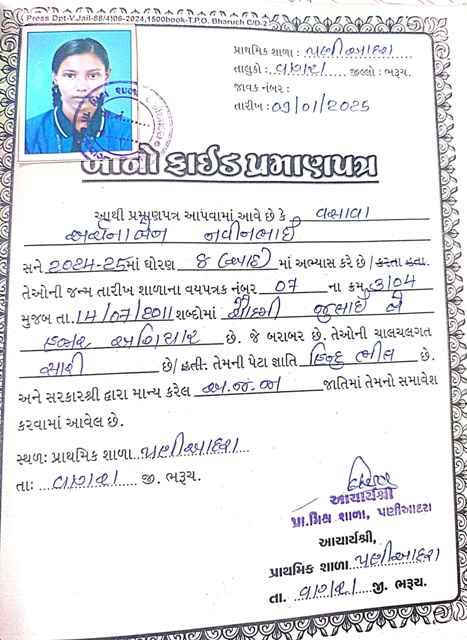 Press Dpt-V.Jail-88/4)06-2024,1500book-T.P.O. Bharuch C/D-2
પ્રાથમિક શાળા : પણીઆદરા
તાલુકો : વાગરા જીલ્લો : ભરૂચ.
જાવક નંબર :
તારીખ : 09/01/2025
બોનોફાઈડ પ્રમાણપત્ર
આથી પ્રમાણપત્ર આપવામાં આવે છે કે વસાવા
અર્ચનાબેન નવીનભાઈ
સને 2024-25માં ધોરણ 8 (આઠ) માં અભ્યાસ કરે છે / કરતા હતા.
તેઓની જન્મ તારીખ શાળાના વયપત્રક નંબર 07 ના ક્રમ 3104
મુજબ તા. 14/07/2011 શબ્દોમાં ચૌદમી જુલાઈ બે
હજાર અગિયાર છે. જે બરાબર છે. તેઓની ચાલચલગત
સારી છે/ હતી. તેમની પેટા જ્ઞાતિ હિન્દુ ભીલ છે.
અને સરકારશ્રી દ્વારા માન્ય કરેલ અ.જ.જા જાતિમાં તેમનો સમાવેશ
કરવામાં આવેલ છે.
સ્થળ: પ્રાથમિક શાળા પણીઆદરા
તા: વાગરા જી. ભરૂચ.
આચાર્યશ્રી
પ્રા.મિશ્ર શાળા, પણીઆદરા
આચાર્યશ્રી,
પ્રાથમિક શાળા પણીઆદરા
તા. વાગરા જી. ભરૂચ.